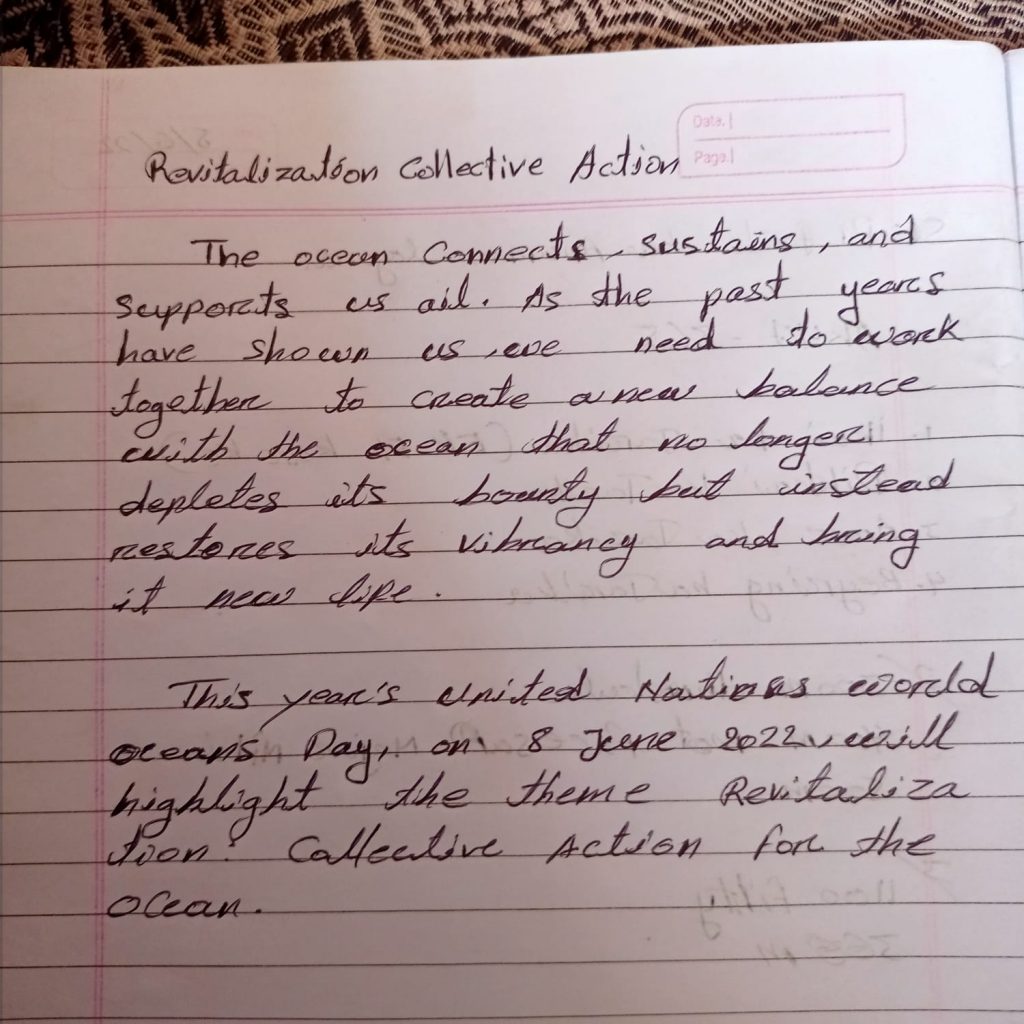 Date.
Page.
Revitalization Collective Action
The ocean Connects, sustains, and
supports us all. As the past years
have shown us, we need to work
together to create a new balance
with the ocean that no longer
depletes its bounty but instead
restores its vibrancy and bring
it new life.
This year's united Nations world
oceans Day, on 8 June 2022, will
highlight the theme Revitaliza
tion: Collective Action for the
ocean.